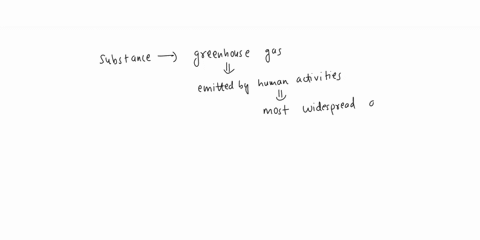 Substance → greenhouse gas
⇓
emitted by human activities
⇓
most widespread a